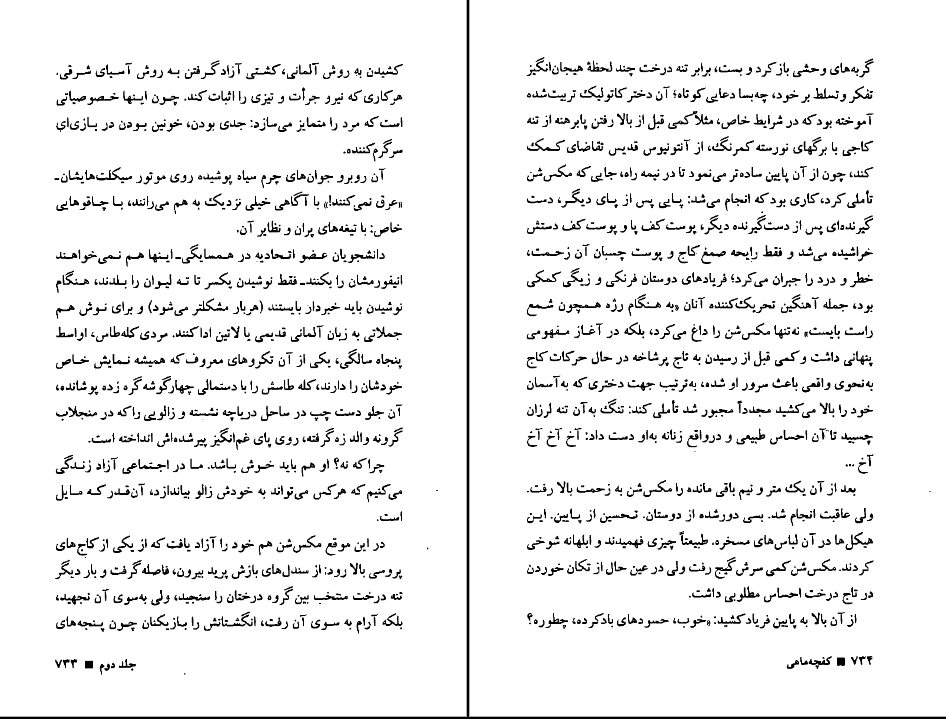 کشیدن به روش آلمانی، کشتی آزاد گرفتن به روش آسیای شرقی.
هرکاری که نیرو جرأت و تیزی را اثبات کند. چون اینها خصوصیاتی
است که مرد را متمایز می‌سازد: جدی بودن، خونین بودن در بازی‌ای
سرگرم‌کننده.
آن روبرو جوان‌های چرم سیاه پوشیده روی موتور سیکلت‌هایشان ـ
«عرق نمی‌کنند!» با آگاهی خیلی نزدیک به هم می‌رانند، با چاقوهایی
خاص: با تیغه‌های پران و نظایر آن.
دانشجویان عضو اتحادیه در همسایگی ـ اینها هم نمی‌خواهند
انیفورمشان را بکنند ـ فقط نوشیدن یکسر تا ته لیوان را بلدند، هنگام
نوشیدن باید خبردار بایستند (هربار مشکلتر می‌شود) و برای نوش هم
جملاتی به زبان آلمانی قدیمی یا لاتین ادا کنند. مردی کله‌طاس، اواسط
پنجاه سالگی، یکی از آن تکروهای معروف که همیشه نمایش خاص
خودشان را دارند، کله طاسش را با دستمالی چهارگوشه گره زده پوشانده،
آن جلو دست چپ در ساحل دریاچه نشسته و زالویی را که در منجلاب
گرونه والد زه گرفته، روی پای غم‌انگیز پیرشده‌اش انداخته است.
چرا که نه؟ او هم باید خوش باشد. ما در اجتماعی آزاد زندگی
می‌کنیم که هرکس می‌تواند به خودش زالو بیاندازد، آن‌قدر که مایل
است.
در این موقع مکس‌شن هم خود را آزاد یافت که از یکی از کاج‌های
پروسی بالا رود: از سندل‌های بازش پرید بیرون، فاصله گرفت و بار دیگر
تنه درخت منتخب بین گروه درختان را سنجید، ولی به‌سوی آن نجهید،
بلکه آرام به سوی آن رفت، انگشتانش را بازیکنان چون پنجه‌های
جلد دوم ■ ۷۳۳
گربه‌های وحشی باز کرد و بست، برابر تنه درخت چند لحظهٔ هیجان‌انگیز
تفکر و تسلط بر خود، چه‌بسا دعایی کوتاه؛ آن دختر کاتولیک تربیت‌شده
آموخته بود که در شرایط خاص، مثلاً کمی قبل از بالا رفتن پابرهنه از تنه
کاجی با برگهای نورسته کمرنگ، از آنتونیوس قدیس تقاضای کمک
کند، چون از آن پایین ساده‌تر می‌نمود تا در نیمه راه، جایی که مکس‌شن
تأملی کرد، کاری بود که انجام می‌شد: پایی پس از پای دیگر، دست
گیرنده‌ای پس از دست گیرنده دیگر، پوست کف پا و پوست کف دستش
خراشیده می‌شد و فقط رایحه صمغ کاج و پوست چسبان آن زحمت،
خطر و درد را جبران می‌کرد؛ فریادهای دوستان فرنکی و زیگی کمکی
بود، جمله آهنگین تحریک‌کننده آنان «به هنگام رژه همچون شمع
راست بایست» نه‌تنها مکس‌شن را داغ می‌کرد، بلکه در آغاز مفهومی
پنهانی داشت و کمی قبل از رسیدن به تاج پرشاخه در حال حرکات کاج
به‌نحوی واقعی باعث سرور او شده، به‌ترتیب جهت دختری که به‌آسمان
خود را بالا می‌کشید مجدداً مجبور شد تأملی کند: تنگ به آن تنه لرزان
چسبید تا آن احساس طبیعی و درواقع زنانه به‌او دست داد: آخ آخ آخ
آخ ...
بعد از آن یک متر و نیم باقی مانده را مکس‌شن به زحمت بالا رفت.
ولی عاقبت انجام شد. بسی دورشده از دوستان. تحسین از پایین. این
هیکل‌ها در آن لباس‌های مسخره. طبیعتاً چیزی فهمیدند و ابلهانه شوخی
کردند. مکس‌شن کمی سرش گیج رفت ولی در عین حال از تکان خوردن
در تاج درخت احساس مطلوبی داشت.
از آن بالا به پایین فریاد کشید: «خوب، حسودهای بادکرده، چطوره؟
۷۳۴ ■ کفچه‌ماهی